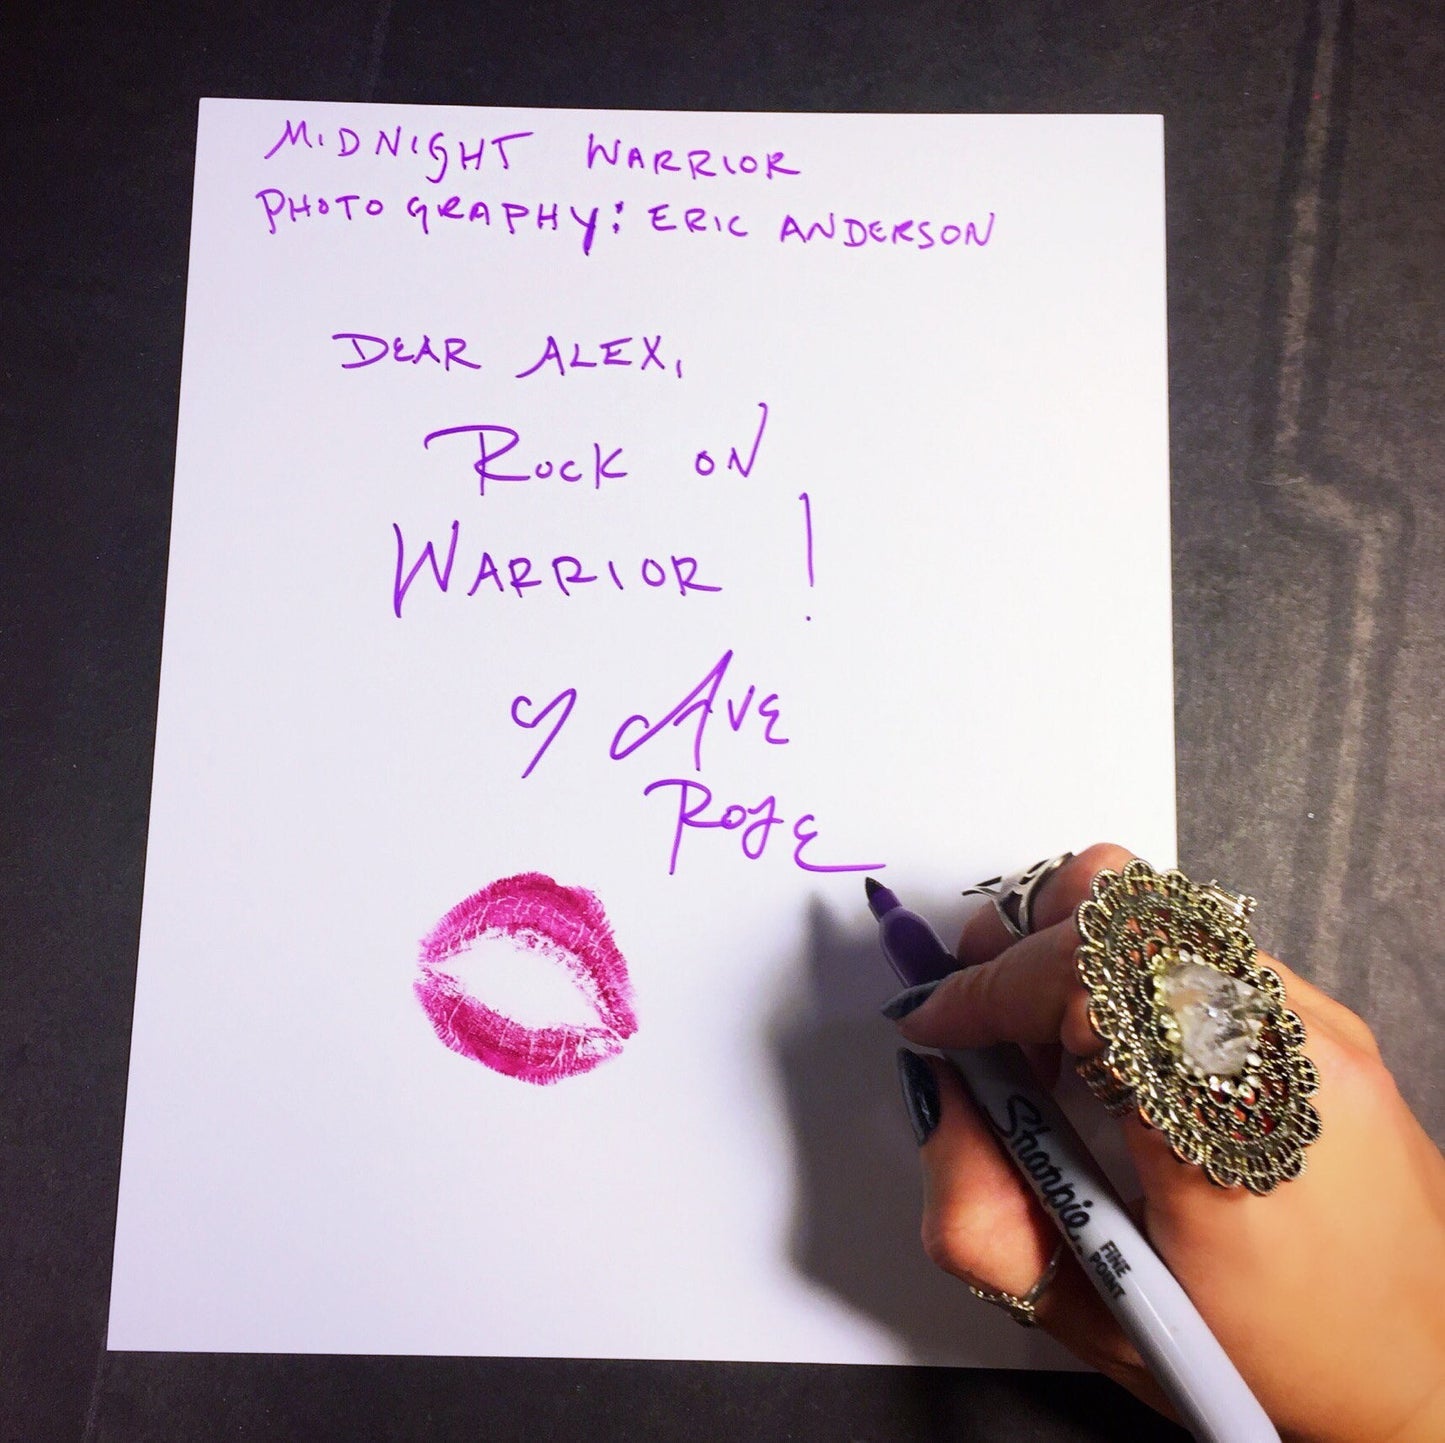 MIDNIGHT WARRIOR
PHOTOGRAPHY: ERIC ANDERSON
DEAR ALEX,
ROCK ON
WARRIOR!
AVE
ROSE
Sharpie
FINE
POINT